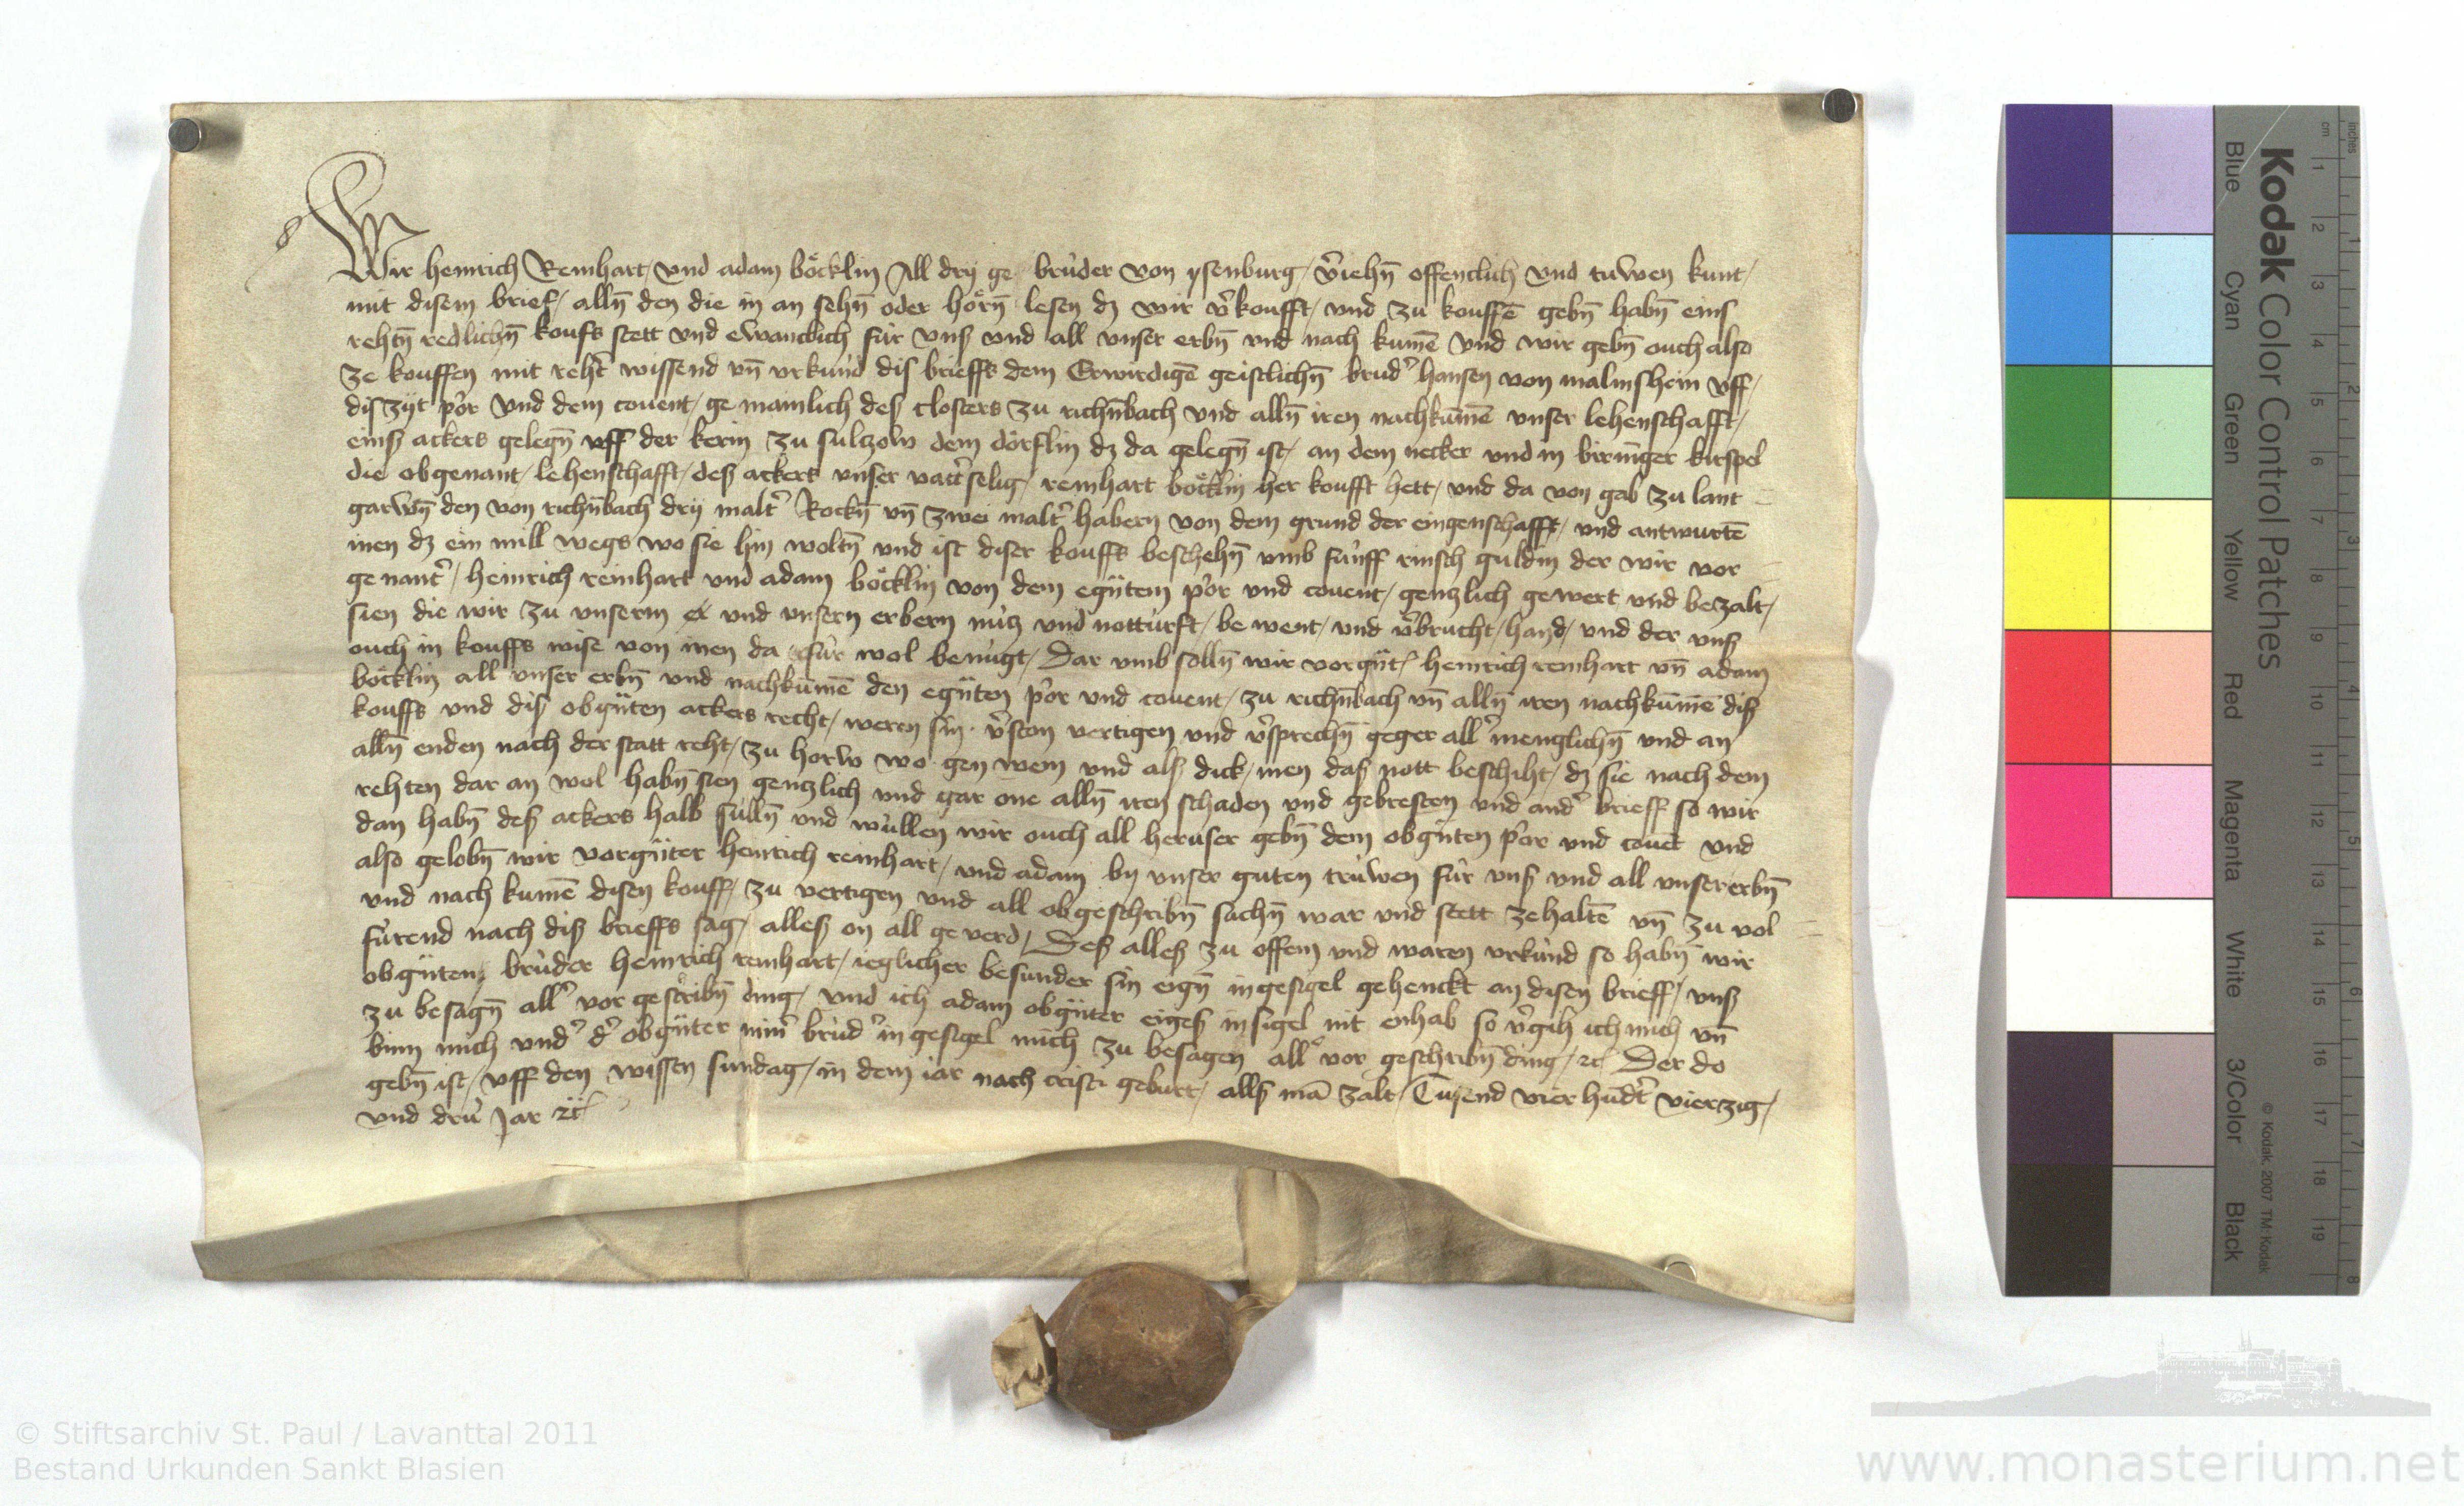 Wir heinrich Reinhart und adam böcklin All dry ge brůder von ysenburg v̾iehn̄ offenclich und tuwen kunt
mit disem brief alln̄ den die in an sehn̄ oder hörn̄ lesen dz wir v̾koufft und zu kouffē gebn̄ habn̄ eins
rehtn̄ redlichn̄ koufs stett und ewanclich für uns und all unser erbn̄ und nach kumē und wir gebn̄ ouch also
ze kouffen mit reht̾ wissend un̄ urkünd dis brieffs dem Erwirdigē geistlichn̄ brud̾ hansen von malmshein uff
dis zyt p̾or und dem covent ge mainlich des closters zu richn̄bach und alln̄ iren nachkūmē unser lehenschafft
einß ackers gelegn̄ uff der kerin zu sultzow dem dörflin dz da gelegn̄ ist an dem necker und in biringer kirspel
die obgenant lehenschafft deß ackers unser vatt̾ selig reinhart böcklin her koufft hett und da von gab zu lant
garwn̄ den von richn̄bach dry malt̾ Rockn̄ un̄ zwei malt̾ habern von dem grund der eingenschafft und antwurtē
inen dz ein mill wegs wo sie hin woltn̄ und ist diser kouffs beschehn̄ umb fünff rinsch guldin der wir vor
ge nant̾ heinrich reinhart und adam böcklin von dem egn̄tem p̾or und covent gentzlich gewert und bezalt
sien die wir zu unserm und unsern erbern nütz und notturft be went und v̾brucht hand und der unß
ouch in kouffs wise von inen da für wol benügt Dar umb solln̄ wir vorgn̄t̾ heinrich reinhart un̄ adam
böcklin all unser erbn̄ und nachkūmē den egn̄ten p̾or und covent zu richn̄bach un̄ alln̄ iren nachkūmē diß
kouffs und diß obgn̄ten ackers recht weren sin v̾ston vertigen und v̾sprechn̄ geger all̾ menglichn̄ und an
alln̄ enden nach der statt reht zu horw wo gen wem und alß dick inen daß nott beschiht dz sie nach dem
rehten dar an wol habn̄ sien gentzlich und gar one alln̄ iren schaden und gebresten und and̾ brieff so wir
dan habn̄ deß ackers halb sülln̄ und wüllen wir ouch all heruser gebn̄ dem obgn̄ten p̾or und covēt und
also gelobn̄ wir vorgn̄ter heinrich reinhart und adam by unser guten trüwen für unß und all unser erbn̄
und nach kumē disen kouff zu vertigen und all obgeschribn̄ sachn̄ war und stett ze haltē un̄ zu vol
fürend nach diß brieffs sag alleß on all geverd Deß alleß zu offem und waren urkünd so habn̄ wir
obgn̄ten brüder heinrich reinhart ieglicher besunder sin eign̄ ingesigel gehenckt an disen brieff unß
zu besagn̄ all̾ vor geschribn̄ ding und ich adam obgn̄ter eigeß insigel nit enhab so v̾gih ich mich un̄
binn mich und̾ d̾ obgn̄ter min̾ brüd̾ in gesigel mich zu besagen all̾ vor geschribn̄ ding ꝛc Der do
gebn̄ ist uff den wissen sundag in dem iar nach cristi geburt allß mā zalt Tusend vier hūdt̾ vierzig
und drü Jar ꝛc
Kodak Color Control Patches
Blue Cyan Green Yellow Red Magenta White 3/Color Black
© Kodak, 2007 TM: Kodak
cm 1 2 3 4 5 6 7 8 9 10 11 12 13 14 15 16 17 18 19
inches 1 2 3 4 5 6 7 8
© Stiftsarchiv St. Paul / Lavanttal 2011
Bestand Urkunden Sankt Blasien
www.monasterium.net